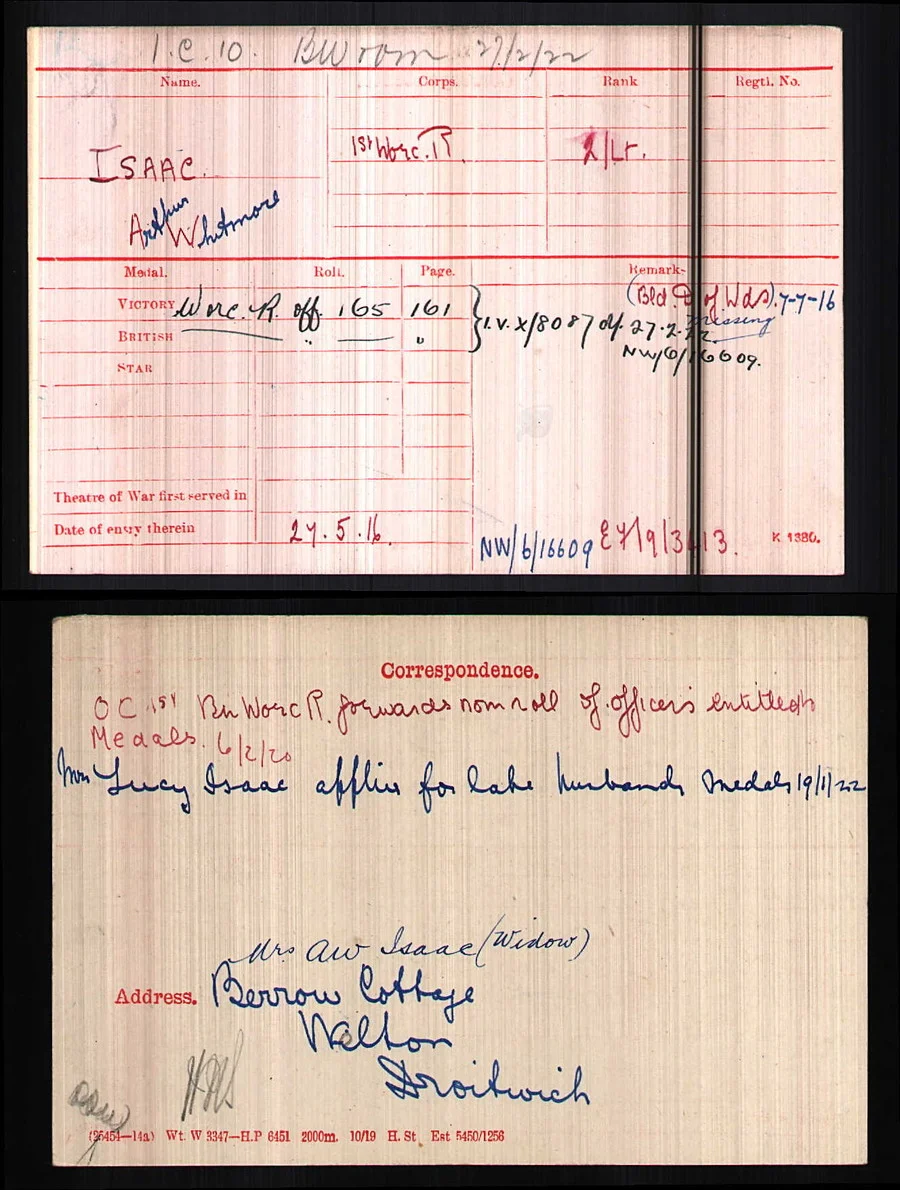 I.C.10. BW room 27/2/22
Name. Corps. Rank Regtl. No.
ISAAC. 1st Worc. R. 2/Lt.
Arthur
Whitmore
Medal. Roll. Page. Remark
VICTORY Worc. R. off 165 161 (Bld D of Wds). 7-7-16
missing
BRITISH " " } I.V. X/8087 of 27.2.22
NW/6/16609.
STAR
Theatre of War first served in
Date of entry therein 27.5.16.
NW/6/16609 EF/9/3413. K 1380.
Correspondence.
O C 1st Bn Worc R. forwards nom roll of officers entitled to
Medals. 6/2/20
Mrs Lucy Isaac applies for late husbands medals 19/1/22
Mrs AW Isaac (Widow)
Address. Berrow Cottage
Droitwich
(35454—14a) Wt. W 3347—H.P 6451 2000m. 10/19 H. St. Est 5450/1256